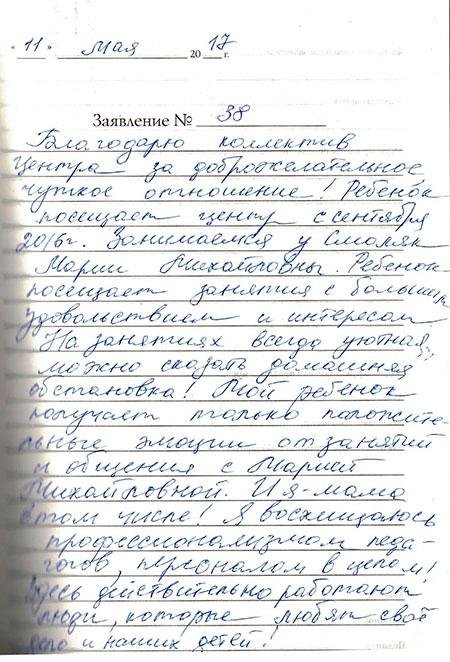 « 11 » Мая 20 17 г.
Заявление № 38
Благодарю коллектив
центра за доброжелательное,
чуткое отношение! Ребенок
посещает центр с сентября
2016г. Занимаемся у Смоляк
Марии Михайловны. Ребенок
посещает занятия с большим
удовольствием и интересом.
На занятиях всегда уютная,
можно сказать домашняя
обстановка! Мой ребенок
получает только положите-
льные эмоции от занятий
и общения с Марией
Михайловной. И я-мама
в том числе! Я восхищаюсь
профессионализмом педа-
гогов, персоналом в целом!
Здесь действительно работают
люди, которые любят своё
дело и наших детей!